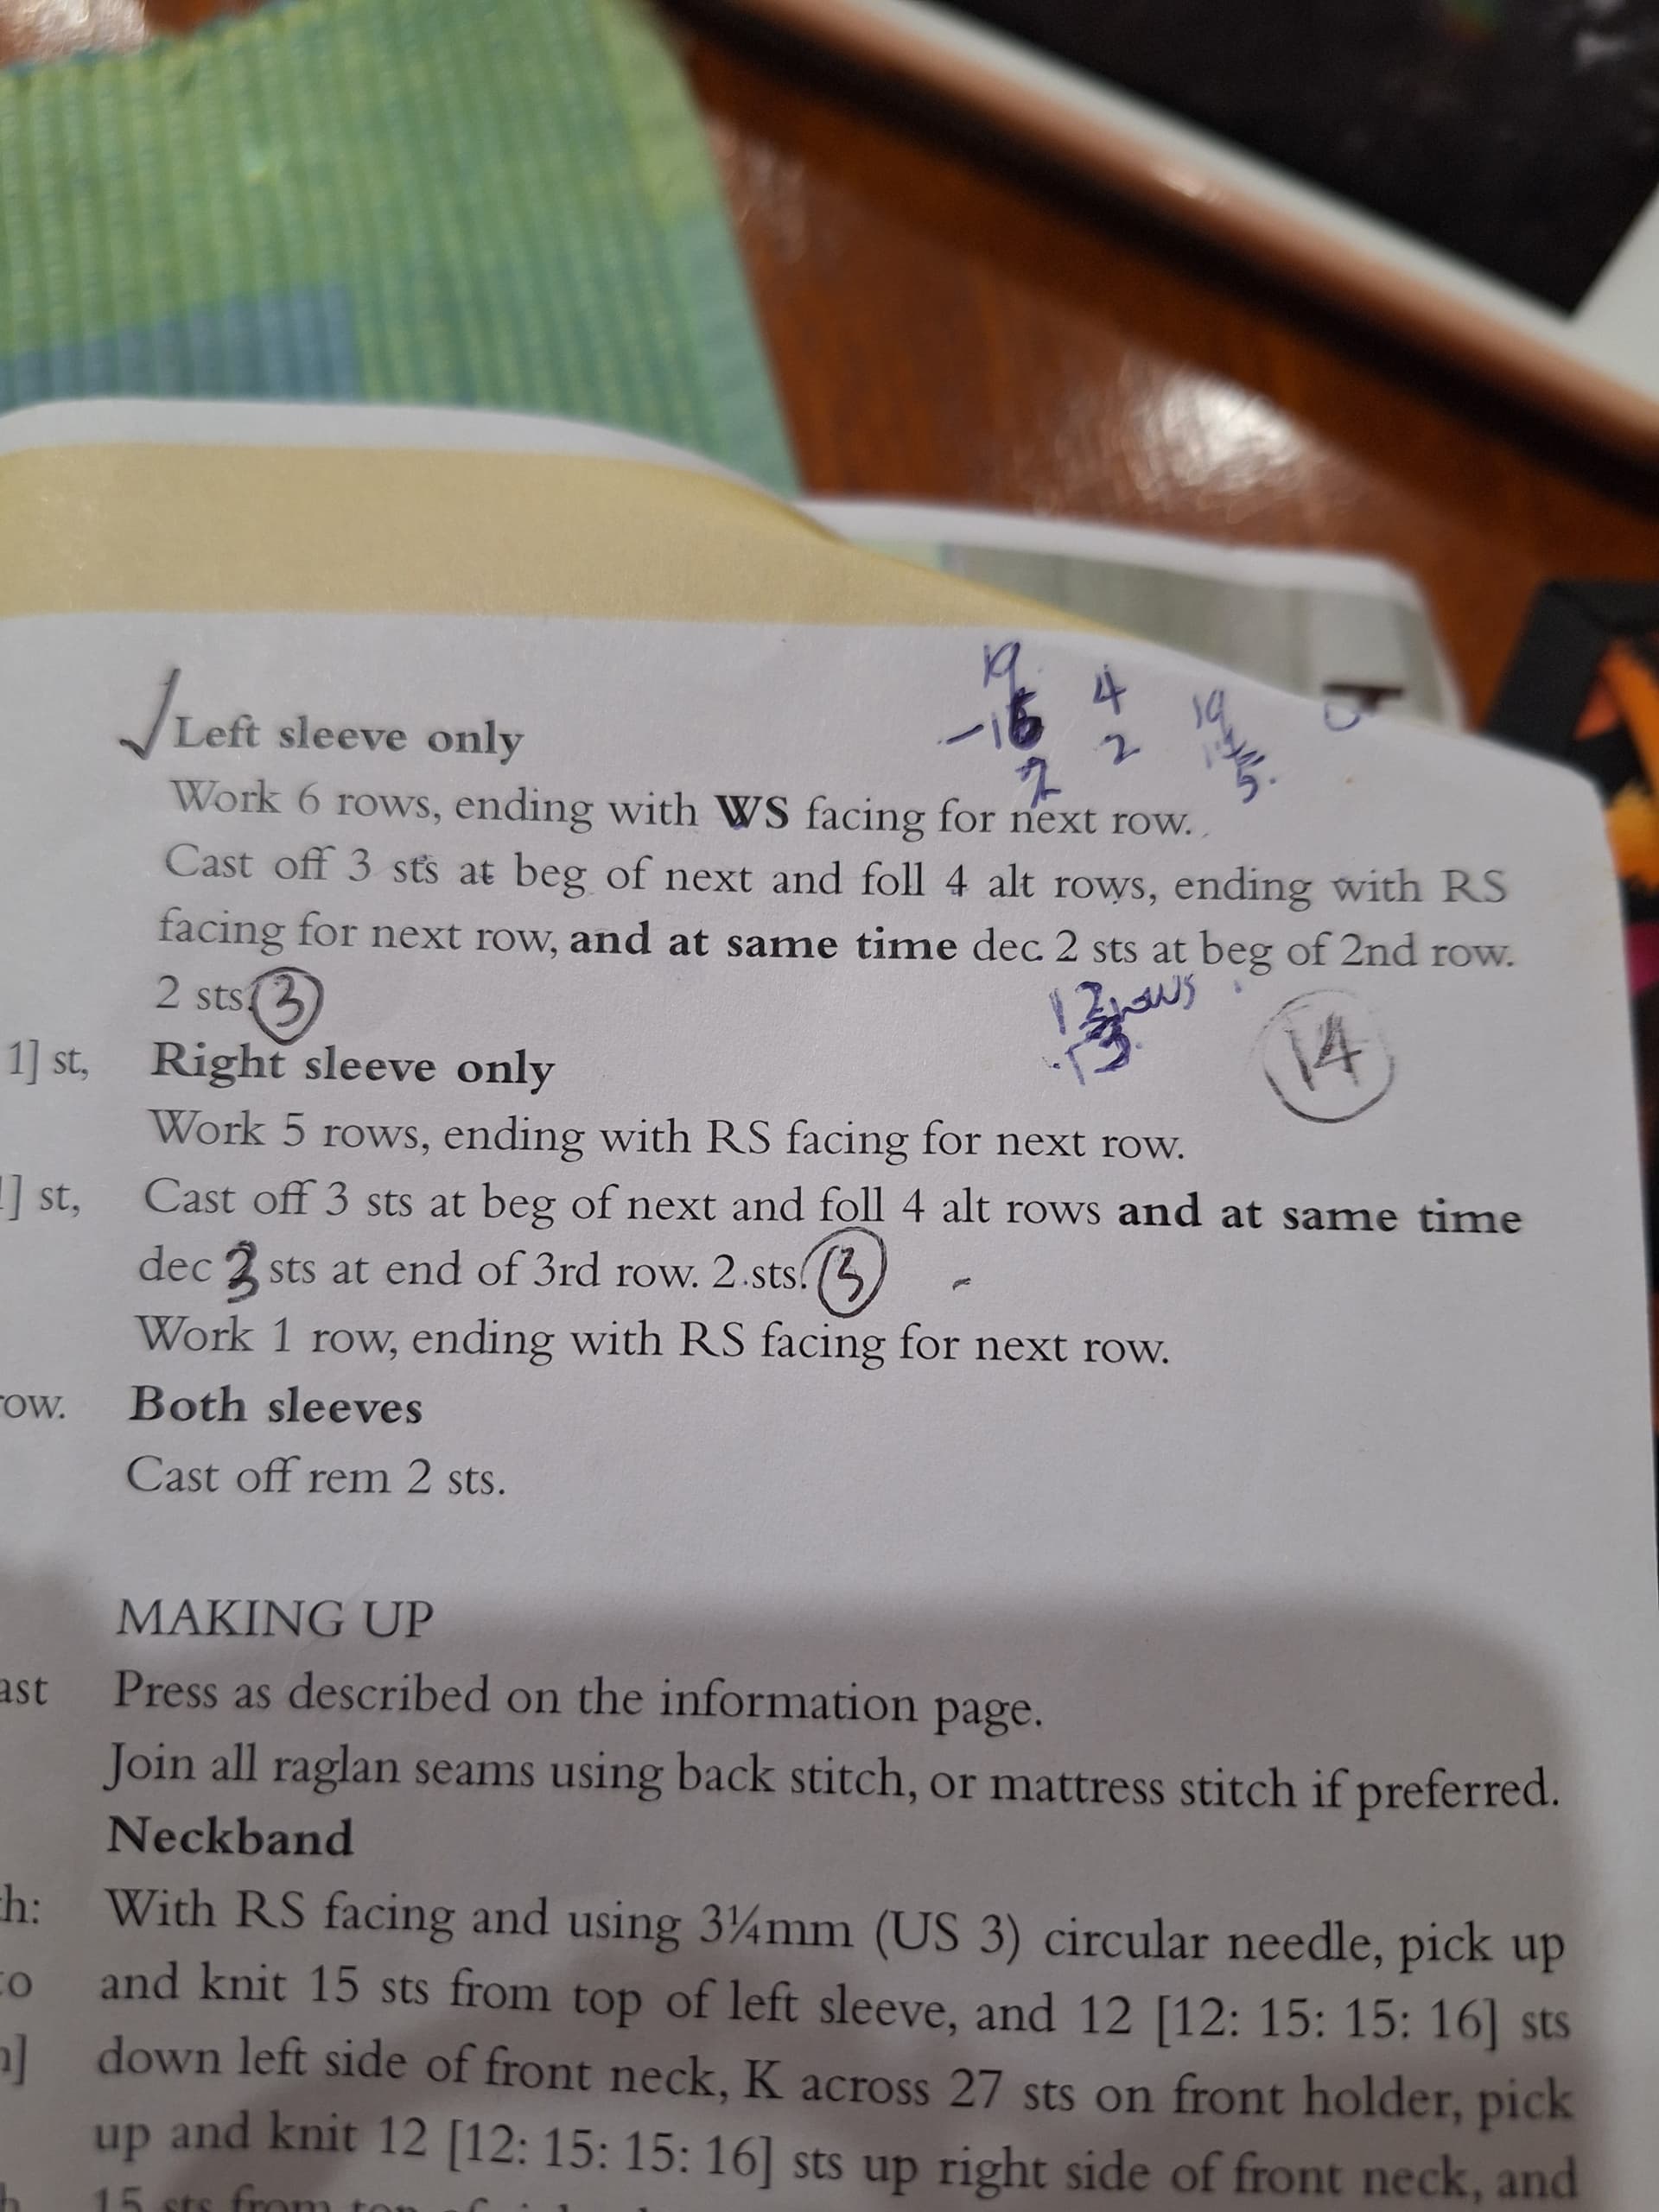 19 4
-16 2 19
2 5.
✓Left sleeve only
Work 6 rows, ending with WS facing for next row.
Cast off 3 sts at beg of next and foll 4 alt rows, ending with RS
facing for next row, and at same time dec 2 sts at beg of 2nd row.
2 sts. 3
12 rows
13
14
1] st,
Right sleeve only
Work 5 rows, ending with RS facing for next row.
] st,
Cast off 3 sts at beg of next and foll 4 alt rows and at same time
dec 3 sts at end of 3rd row. 2 sts. 3
Work 1 row, ending with RS facing for next row.
ow.
Both sleeves
Cast off rem 2 sts.
MAKING UP
ast
Press as described on the information page.
Join all raglan seams using back stitch, or mattress stitch if preferred.
Neckband
h:
With RS facing and using 3¼mm (US 3) circular needle, pick up
o
and knit 15 sts from top of left sleeve, and 12 [12: 15: 15: 16] sts
]
down left side of front neck, K across 27 sts on front holder, pick
up and knit 12 [12: 15: 15: 16] sts up right side of front neck, and
15 sts from top of